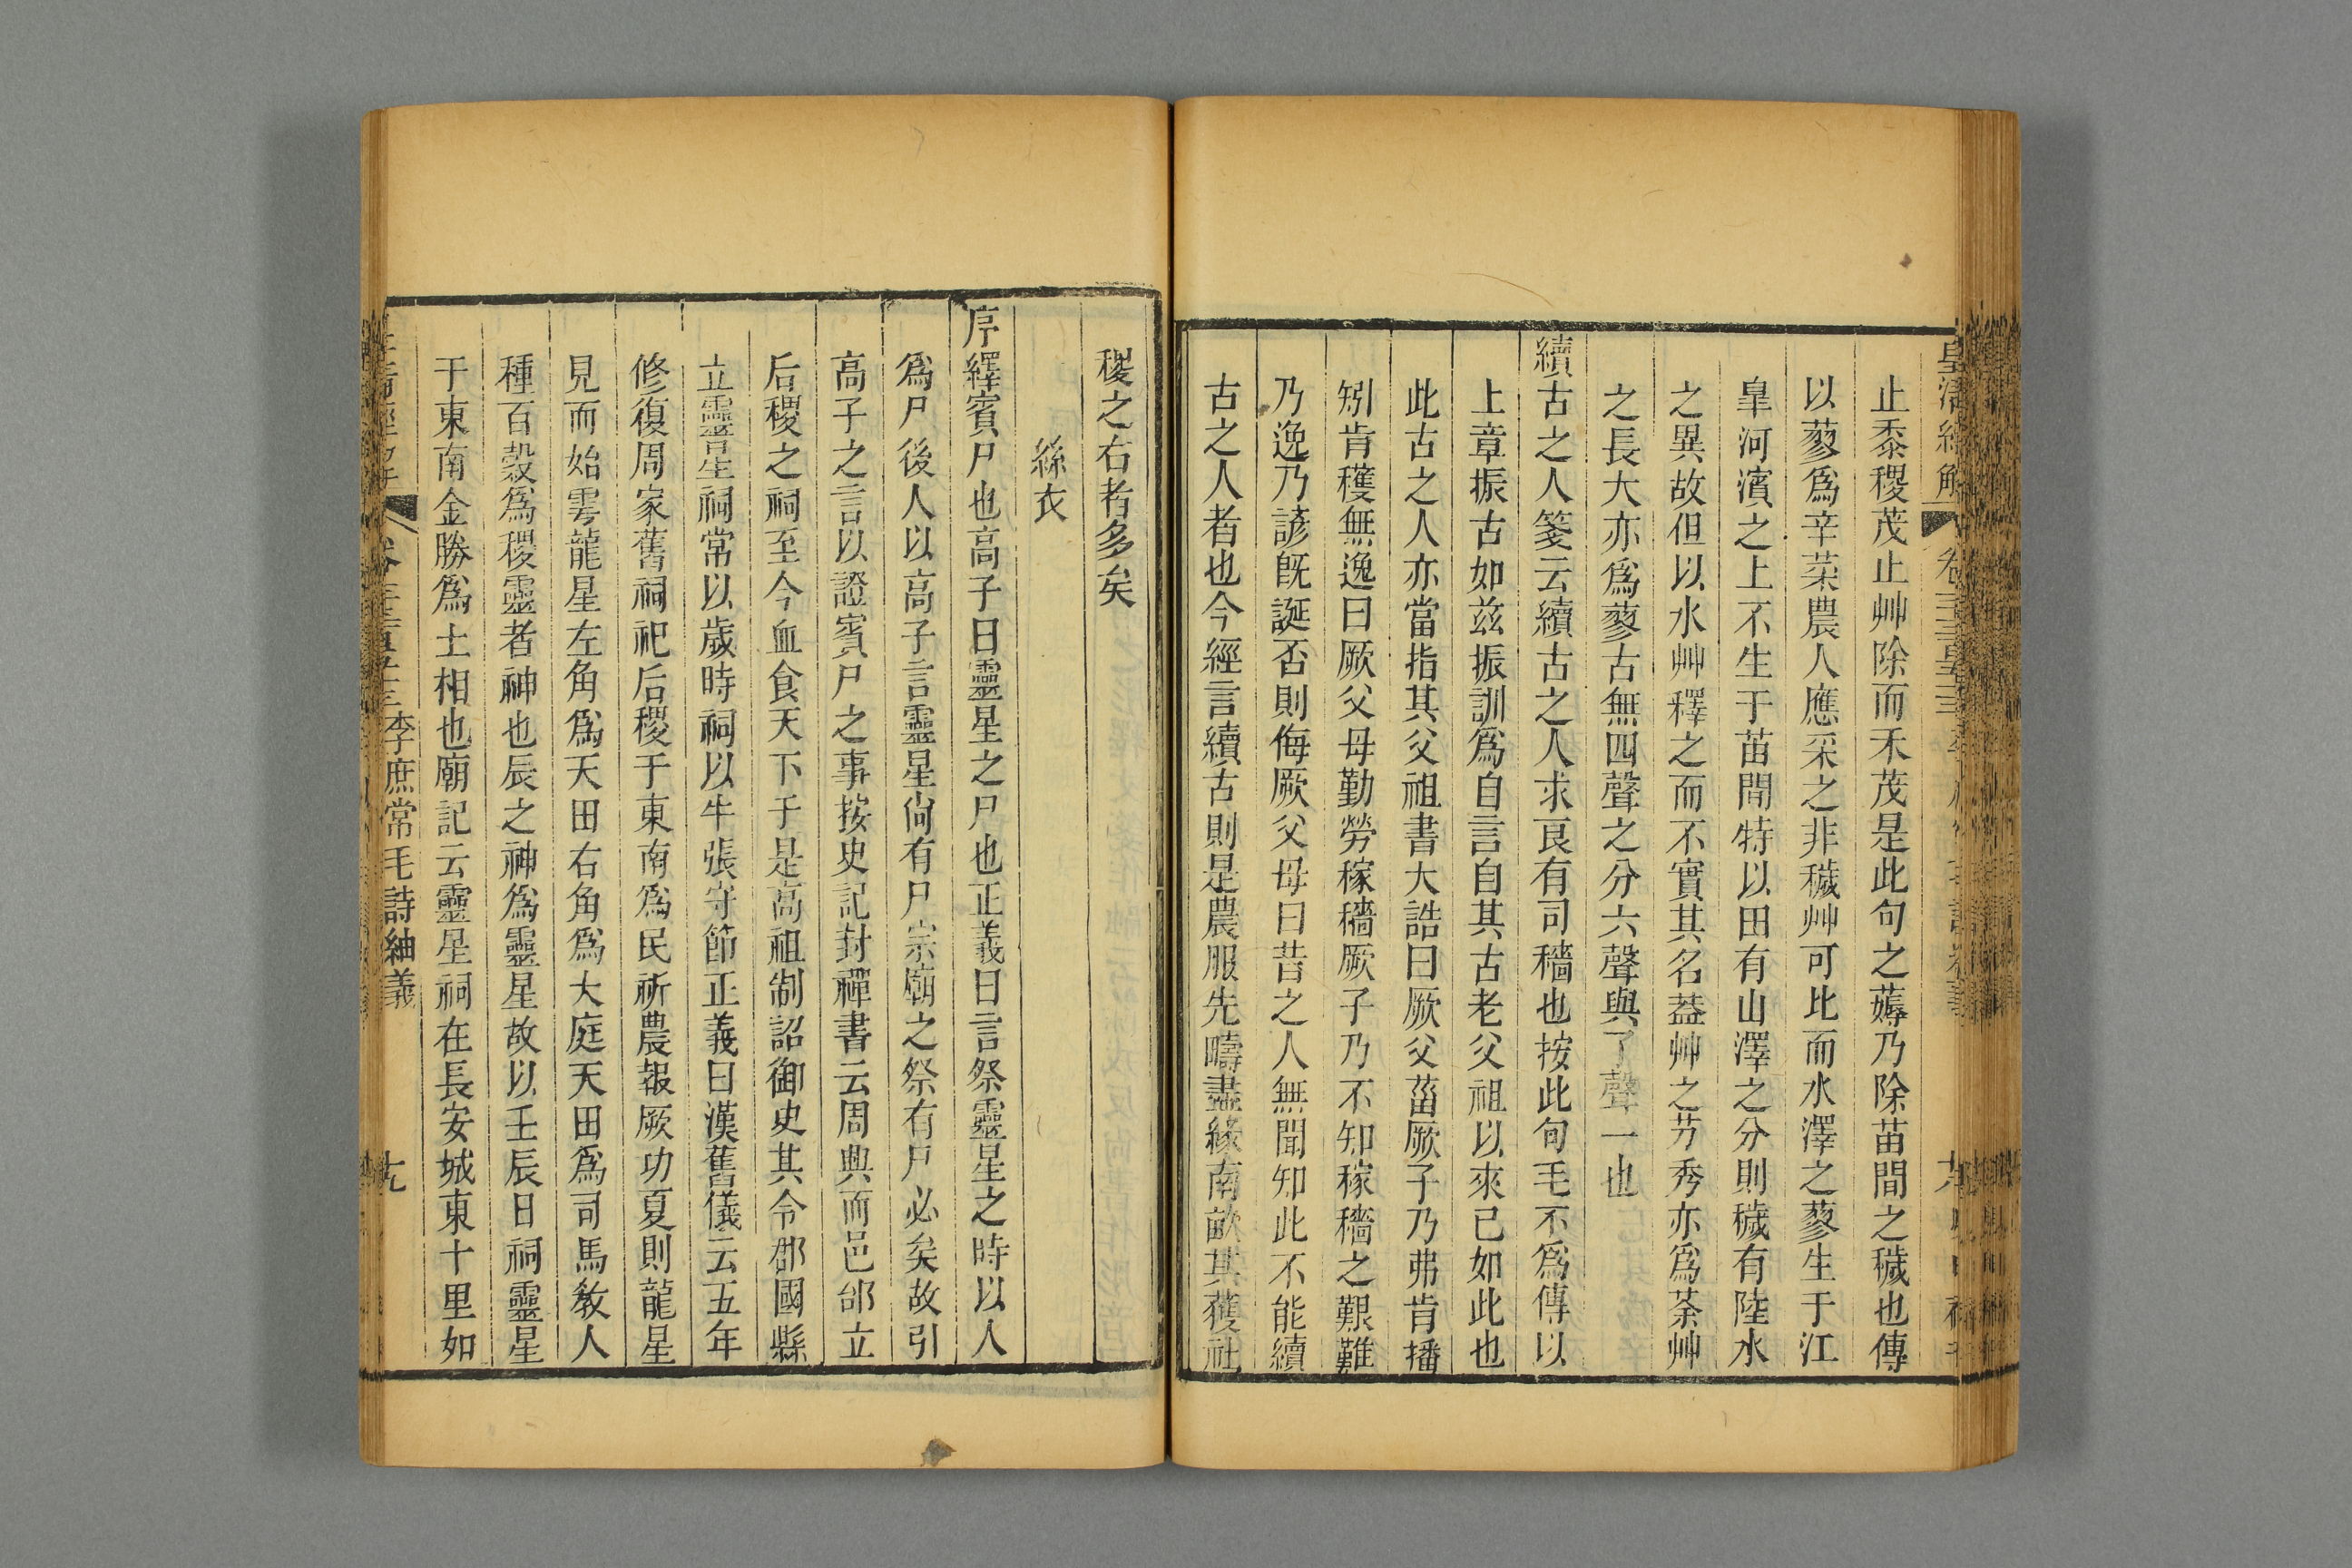 止黍稷茂止艸除而禾茂是此句之薅乃除苗間之穢也傳
以蓼爲辛菜農人應采之非穢艸可比而水澤之蓼生于江
皐河濱之上不生于苗間特以田有山澤之分則穢有陸水
之異故但以水艸釋之而不實其名葢艸之艻秀亦爲荼艸
之長大亦爲蓼古無四聲之分六聲與了聲一也
續古之人箋云續古之人求艮有司穡也按此句毛不爲傳以
上章振古如兹振訓爲自言自其古老父祖以來已如此也
此古之人亦當指其父祖書大誥曰厥父菑厥子乃弗肯播
矧肯穫無逸曰厥父母勤勞稼穡厥子乃不知稼穡之艱難
乃逸乃諺旣誕否則侮厥父母曰昔之人無聞知此不能續
古之人者也今經言續古則是農服先疇盡緣南畝其獲社
稷之右者多矣
絲衣
序繹賓尸也高子曰靈星之尸也正義曰言祭靈星之時以人
爲尸後人以高子言靈星尙有尸宗廟之祭有尸必矣故引
高子之言以證賓尸之事按史記封禪書云周興而邑邰立
后稷之祠至今血食天下于是高祖制詔御史其令郡國縣
立靈星祠常以歲時祠以牛張守節正義曰漢舊儀云五年
修復周家舊祠祀后稷于東南爲民祈農報厥功夏則龍星
見而始雩龍星左角爲天田右角爲大庭天田爲司馬敎人
種百穀爲稷靈者神也辰之神爲靈星故以壬辰日祠靈星
于東南金勝爲土相也廟記云靈星祠在長安城東十里如
李庶常毛詩紬義